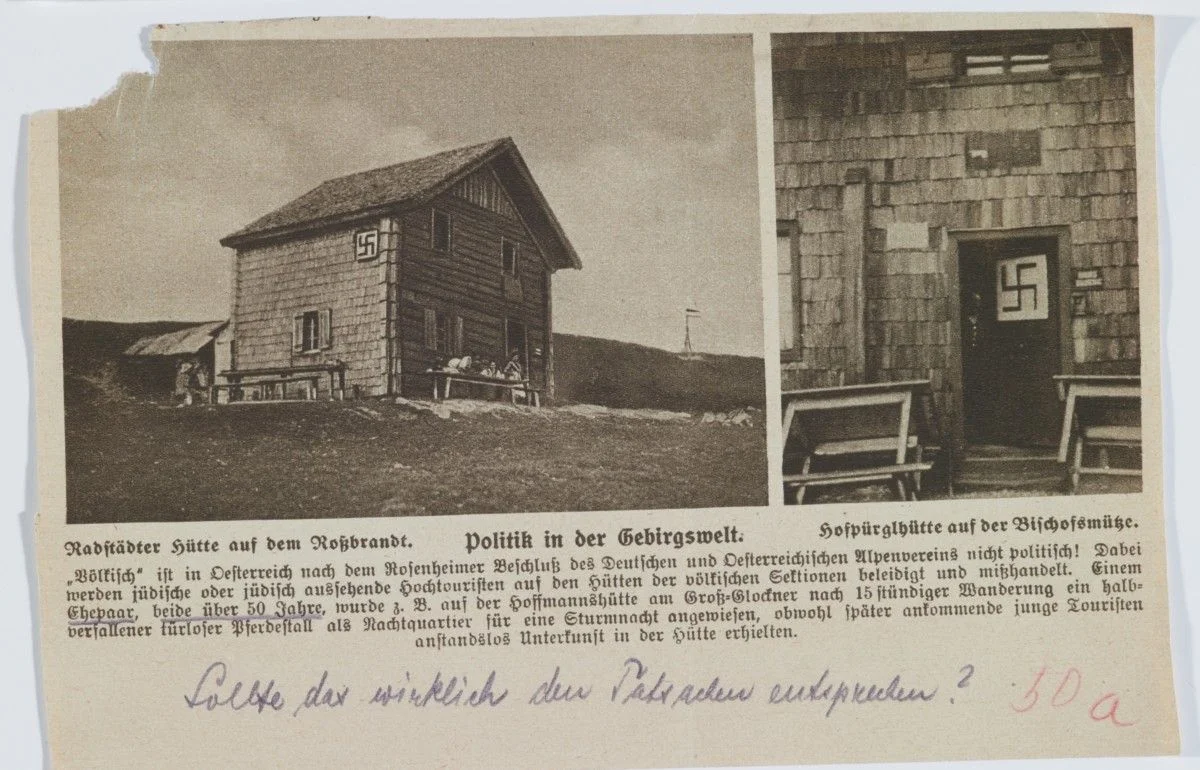 Radstädter Hütte auf dem Roßbrandt.
Politik in der Gebirgswelt.
Hofpürglhütte auf der Bischofsmütze.
„Völkisch“ ist in Oesterreich nach dem Rosenheimer Beschluß des Deutschen und Oesterreichischen Alpenvereins nicht politisch! Dabei
werden jüdische oder jüdisch aussehende Hochtouristen auf den Hütten der völkischen Sektionen beleidigt und mißhandelt. Einem
Ehepaar, beide über 50 Jahre, wurde z. B. auf der Hoffmannshütte am Groß-Glockner nach 15 stündiger Wanderung ein halb-
verfallener türloser Pferdestall als Nachtquartier für eine Sturmnacht angewiesen, obwohl später ankommende junge Touristen
anstandslos Unterkunft in der Hütte erhielten.
Sollte das wirklich den Tatsachen entsprechen?
50 a